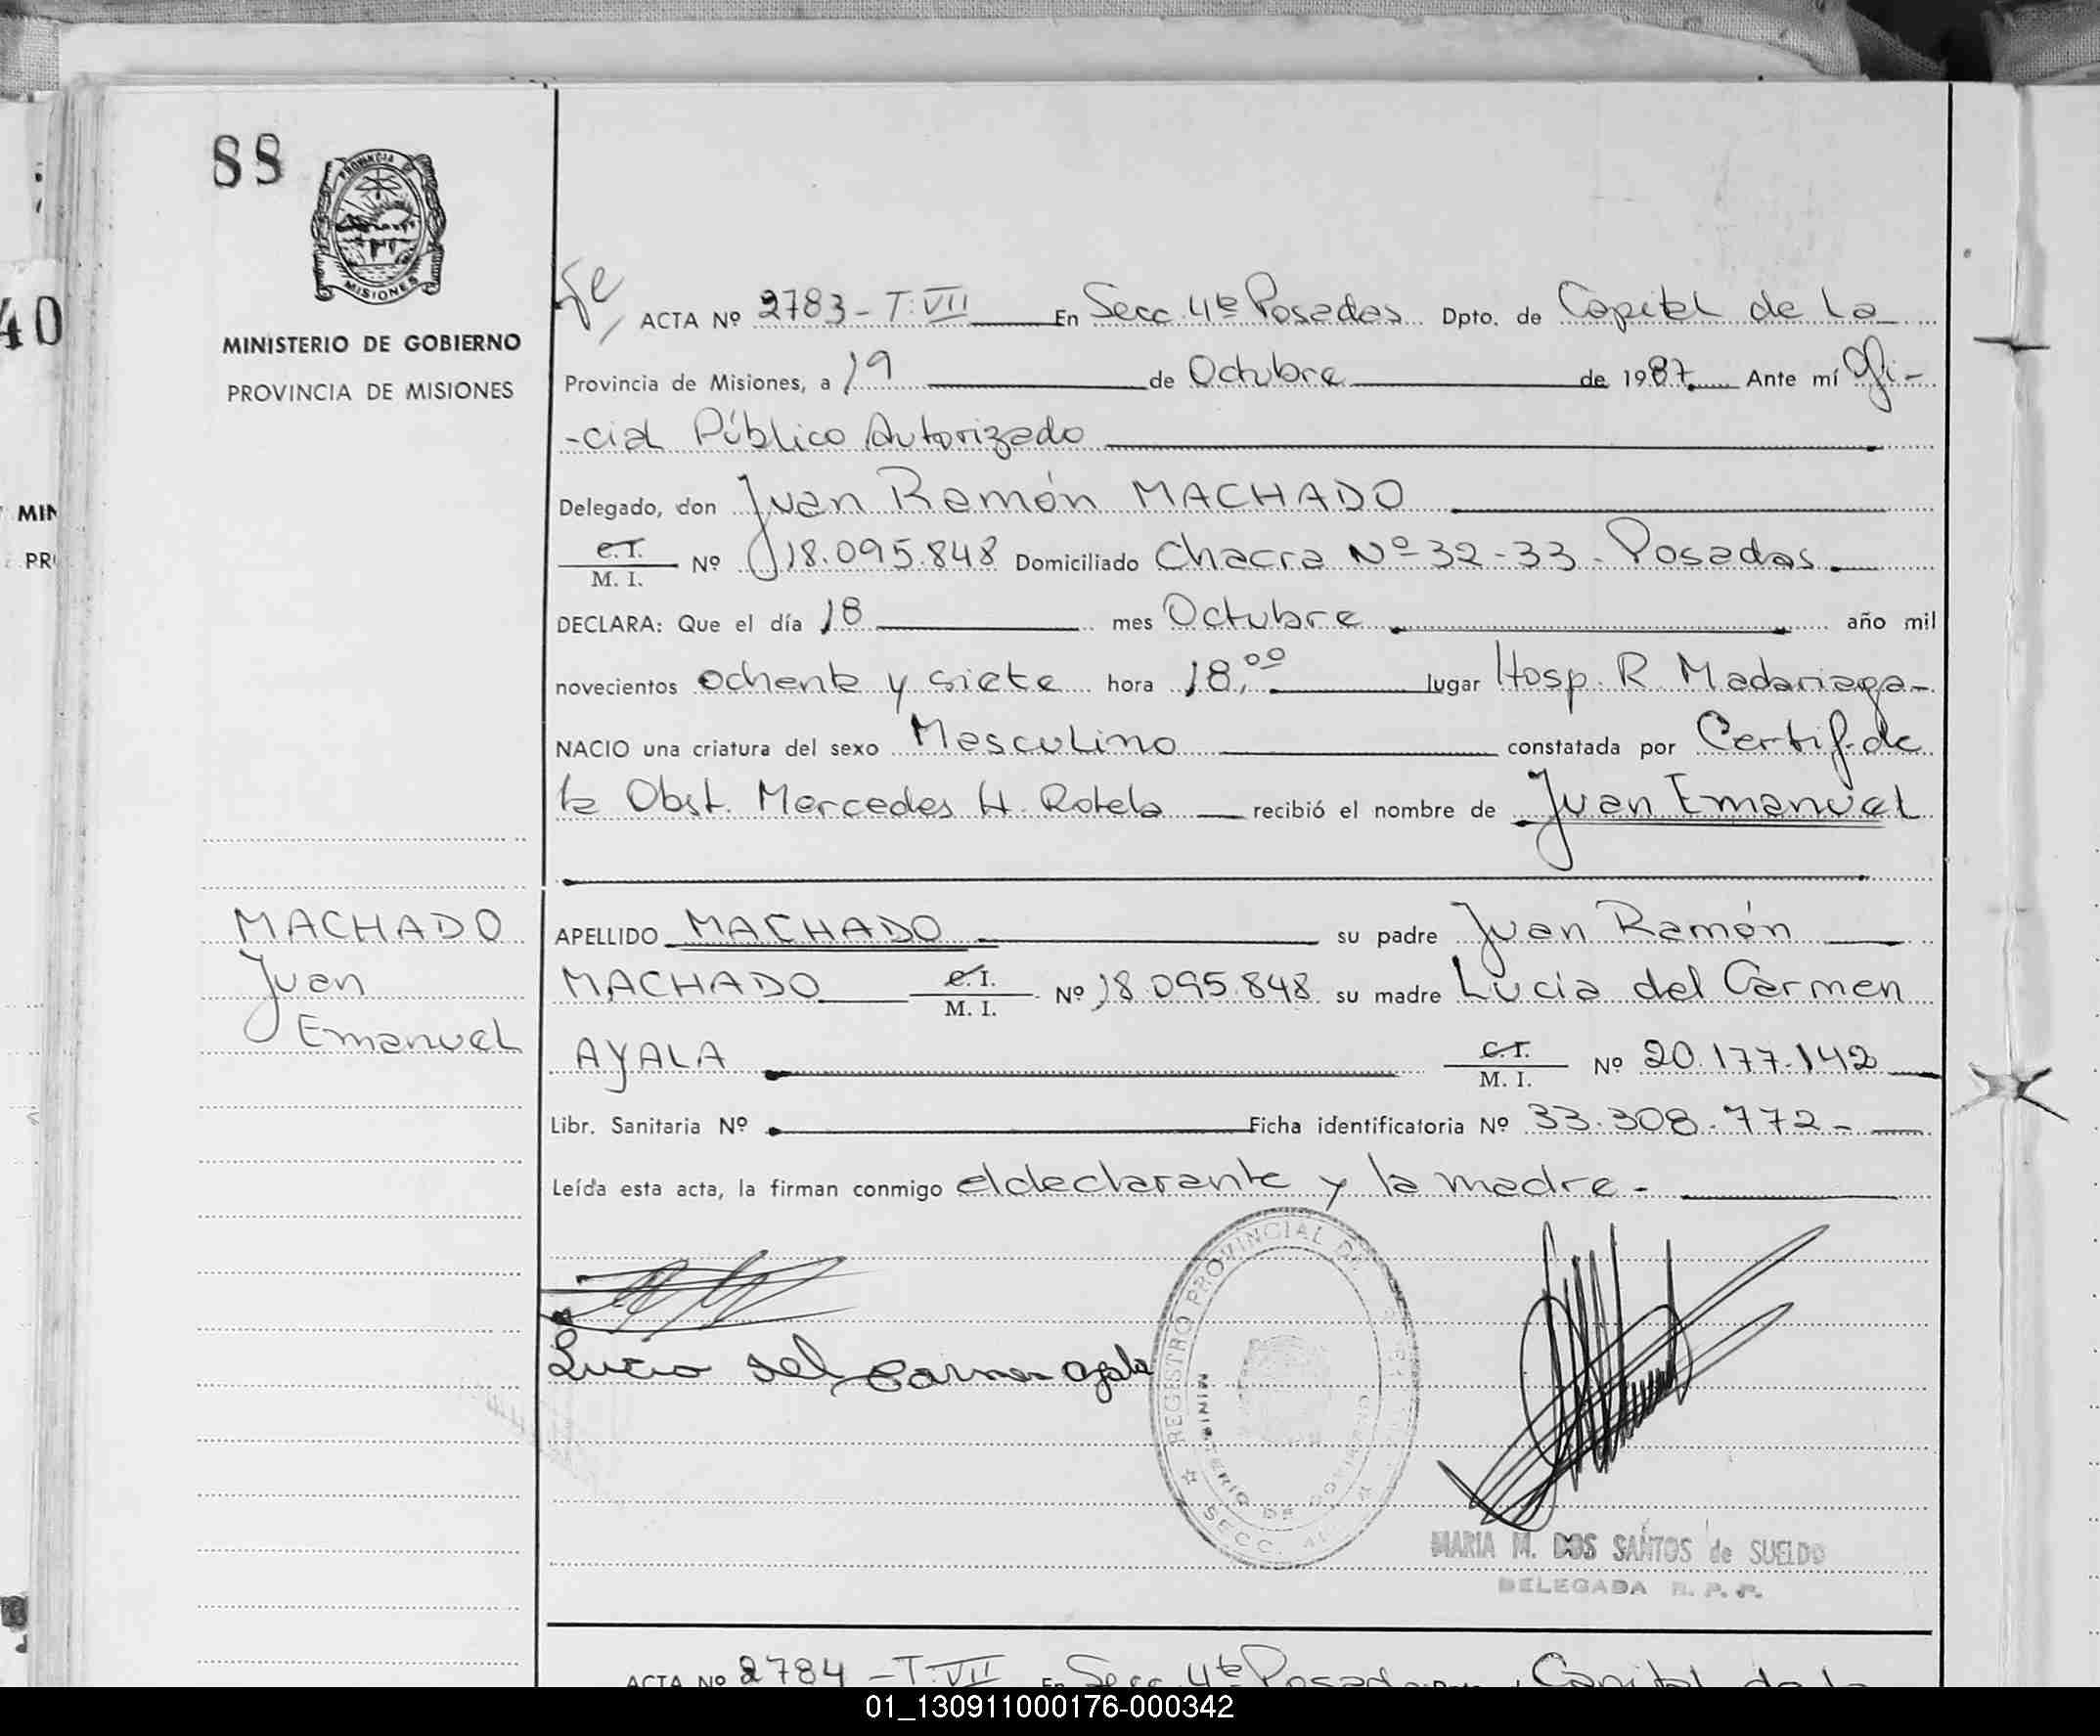 88
PROVINCIA DE
MISIONES
MINISTERIO DE GOBIERNO
PROVINCIA DE MISIONES
40
MIN
PR
ACTA Nº 2783-T.VII En Secc. 4ta Posadas Dpto. de Capital de la
Provincia de Misiones, a 19 de Octubre de 1987. Ante mí Ofi-
-cial Público Autorizado
Delegado, don Juan Ramón MACHADO
C.I.
M. I. Nº 18.095.848 Domiciliado Chacra Nº 32-33-Posadas
DECLARA: Que el día 18 mes Octubre año mil
novecientos ochenta y siete hora 18,00 lugar Hosp. R. Madariaga-
NACIO una criatura del sexo Masculino constatada por Certif. de
la Obst. Mercedes H. Rotela recibió el nombre de Juan Emanuel
MACHADO
Juan
Emanuel
APELLIDO MACHADO su padre Juan Ramón
MACHADO C.I. M. I. Nº 18.095.848 su madre Lucia del Carmen
AYALA C.I. M. I. Nº 20.177.142
Libr. Sanitaria Nº Ficha identificatoria Nº 33.308.772-
Leída esta acta, la firman conmigo el declarante y la madre-
Lucia del Carmen Ayala
REGISTRO PROVINCIAL DE
MINISTERIO DE GOBIERNO
SECC. 4ta
MARIA M. DOS SANTOS de SUELDO
DELEGADA R. P. P.
ACTA Nº 2784-T.VII En Secc. 4ta Posadas Capital de la
01_130911000176-000342